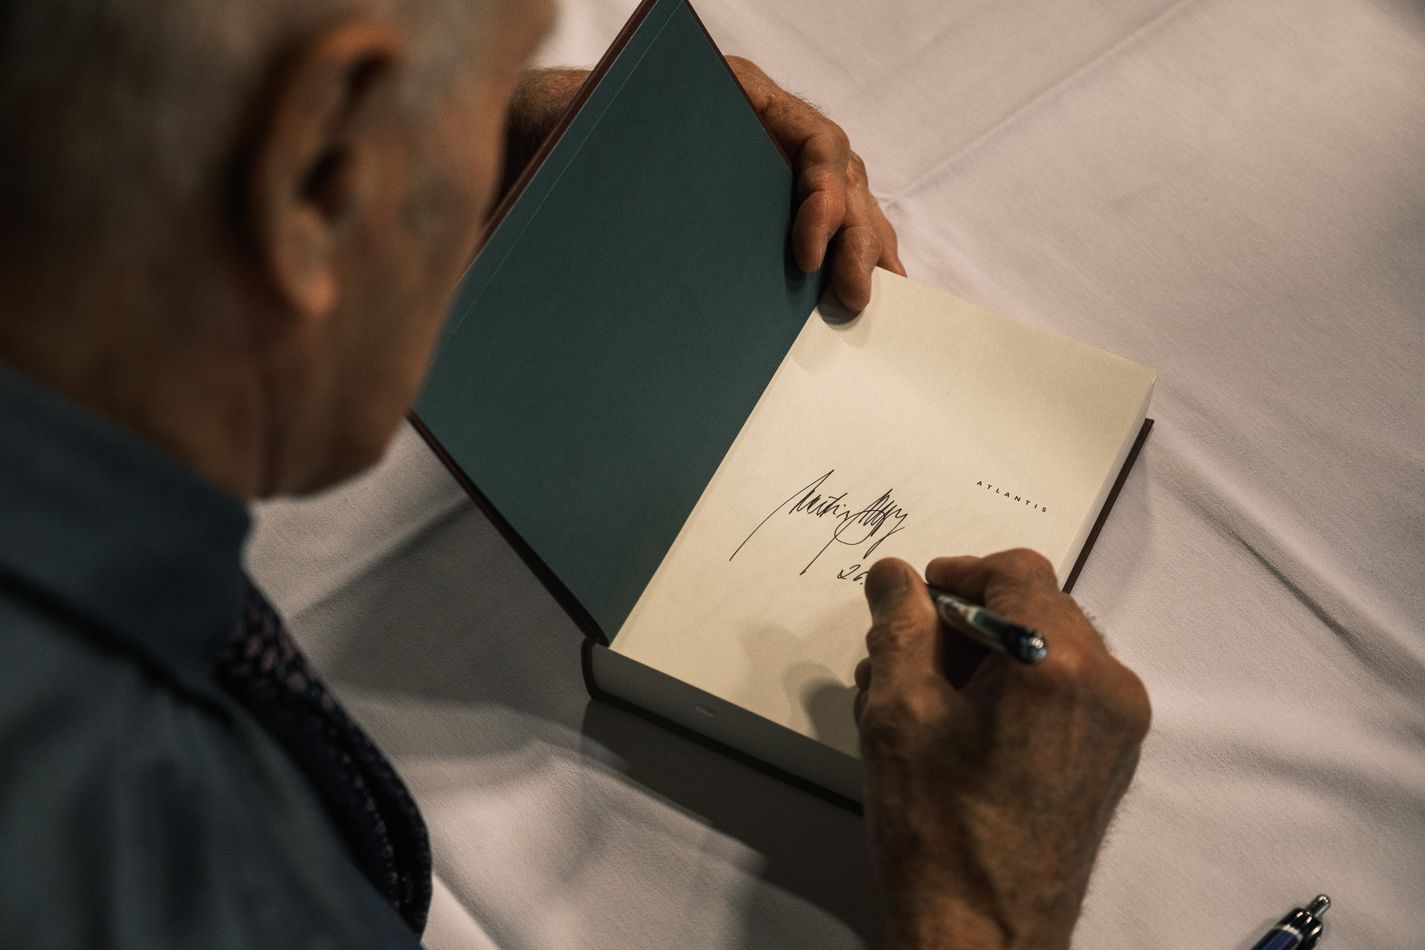 ATLANTIS
Martin
26.